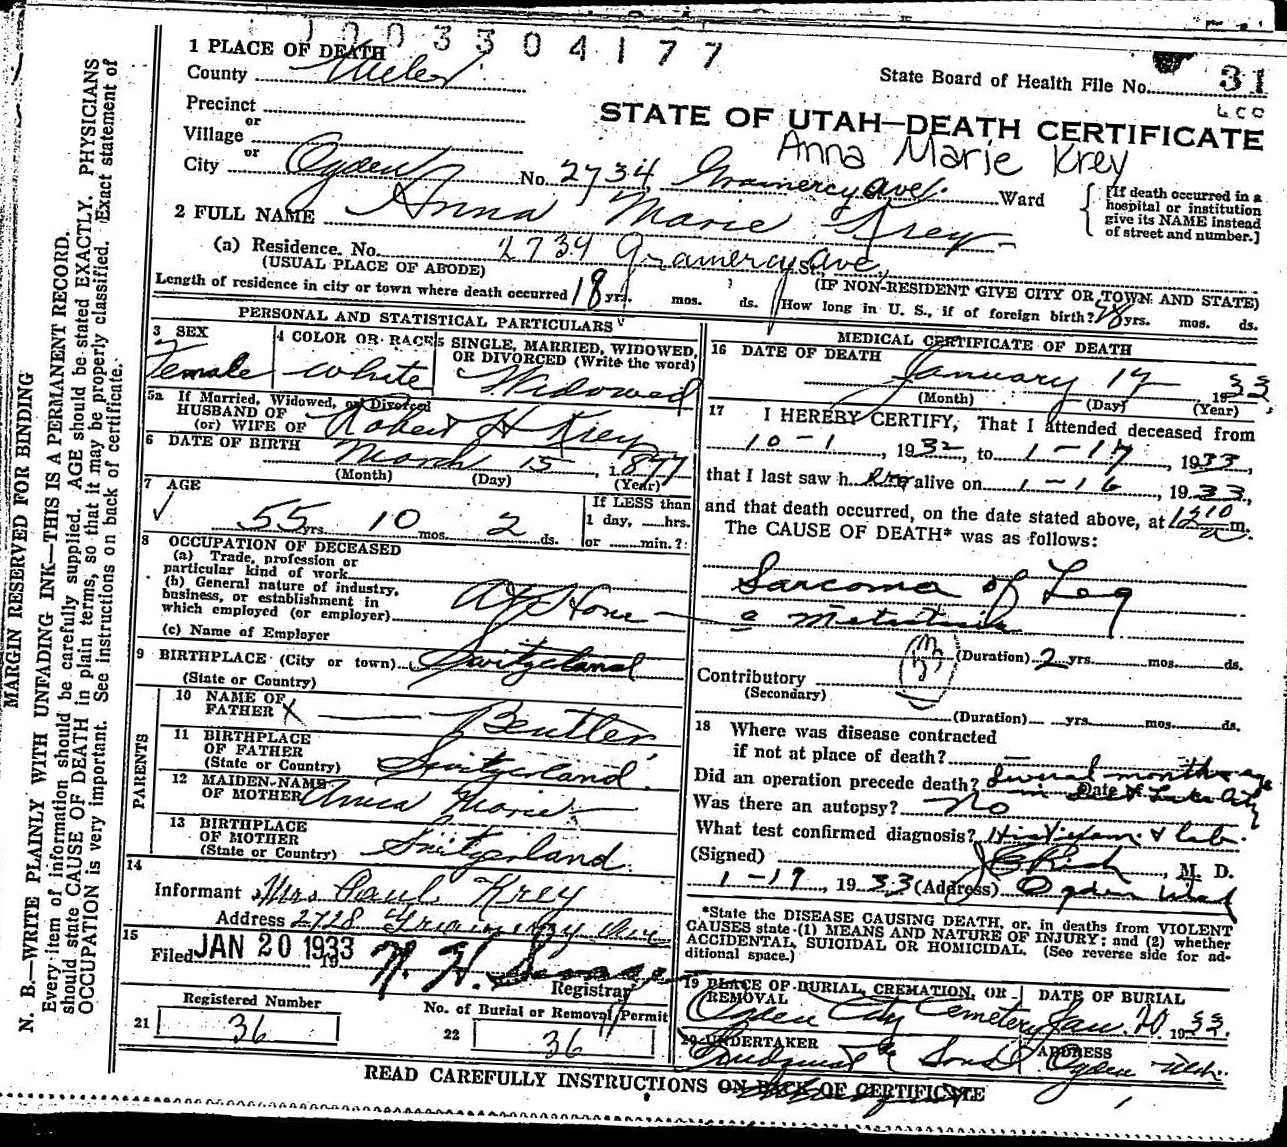 1003304177
1 PLACE OF DEATH
State Board of Health File No. 31
County Weber
Precinct
or
STATE OF UTAH—DEATH CERTIFICATE
Village
or
Anna Marie Krey
City Ogden No. 2734 Gramercy Ave. Ward
[If death occurred in a hospital or institution give its NAME instead of street and number.]
2 FULL NAME Anna Marie Krey
(a) Residence. No. 2734 Gramercy Ave. St.,
(USUAL PLACE OF ABODE) (IF NON-RESIDENT GIVE CITY OR TOWN AND STATE)
Length of residence in city or town where death occurred 18 yrs. mos. ds. How long in U. S., if of foreign birth? yrs. mos. ds.
PERSONAL AND STATISTICAL PARTICULARS
3 SEX 4 COLOR OR RACE 5 SINGLE, MARRIED, WIDOWED, OR DIVORCED (Write the word)
Female White Widowed
5a If Married, Widowed, or Divorced
HUSBAND OF
(or) WIFE OF Robert H Krey
6 DATE OF BIRTH March 15, 1877
(Month) (Day) (Year)
7 AGE
55 yrs. 10 mos. 2 ds.
If LESS than
1 day, hrs.
or min.?
8 OCCUPATION OF DECEASED
(a) Trade, profession or
particular kind of work
(b) General nature of industry,
business, or establishment in
which employed (or employer) At Home
(c) Name of Employer
9 BIRTHPLACE (City or town) Switzerland
(State or Country)
PARENTS
10 NAME OF
FATHER X Beutler
11 BIRTHPLACE
OF FATHER
(State or Country) Switzerland
12 MAIDEN NAME
OF MOTHER Anna Marie
13 BIRTHPLACE
OF MOTHER
(State or Country) Switzerland
14
Informant Mrs. Paul Krey
Address 2728 Gramercy Ave
15
Filed JAN 20 1933 19
Registrar
Registered Number No. of Burial or Removal Permit
21 36 22 36
MEDICAL CERTIFICATE OF DEATH
16 DATE OF DEATH
January 17 1933
(Month) (Day) (Year)
17 I HEREBY CERTIFY, That I attended deceased from
10-1, 1932, to 1-17, 1933,
that I last saw her alive on 1-16, 1933,
and that death occurred, on the date stated above, at 1210 a m.
The CAUSE OF DEATH* was as follows:
Sarcoma of Leg
(Duration) 2 yrs. mos. ds.
Contributory
(Secondary)
(Duration) yrs. mos. ds.
18 Where was disease contracted
if not at place of death?
Did an operation precede death? Several months ago
Date of in Salt Lake City
Was there an autopsy? No
What test confirmed diagnosis? & Lab.
(Signed) Rich, M. D.
1-19, 1933 (Address) Ogden Utah
*State the DISEASE CAUSING DEATH, or, in deaths from VIOLENT
CAUSES state (1) MEANS AND NATURE OF INJURY; and (2) whether
ACCIDENTAL, SUICIDAL OR HOMICIDAL. (See reverse side for ad-
ditional space.)
19 PLACE OF BURIAL, CREMATION, OR REMOVAL DATE OF BURIAL
Ogden City Cemetery Jan. 20 1933.
20 UNDERTAKER ADDRESS
& Sons Ogden Utah.
READ CAREFULLY INSTRUCTIONS ON BACK OF CERTIFICATE
MARGIN RESERVED FOR BINDING
N. B.—WRITE PLAINLY WITH UNFADING INK—THIS IS A PERMANENT RECORD.
Every item of information should be carefully supplied. AGE should be stated EXACTLY. PHYSICIANS
should state CAUSE OF DEATH in plain terms, so that it may be properly classified. Exact statement of
OCCUPATION is very important. See instructions on back of certificate.